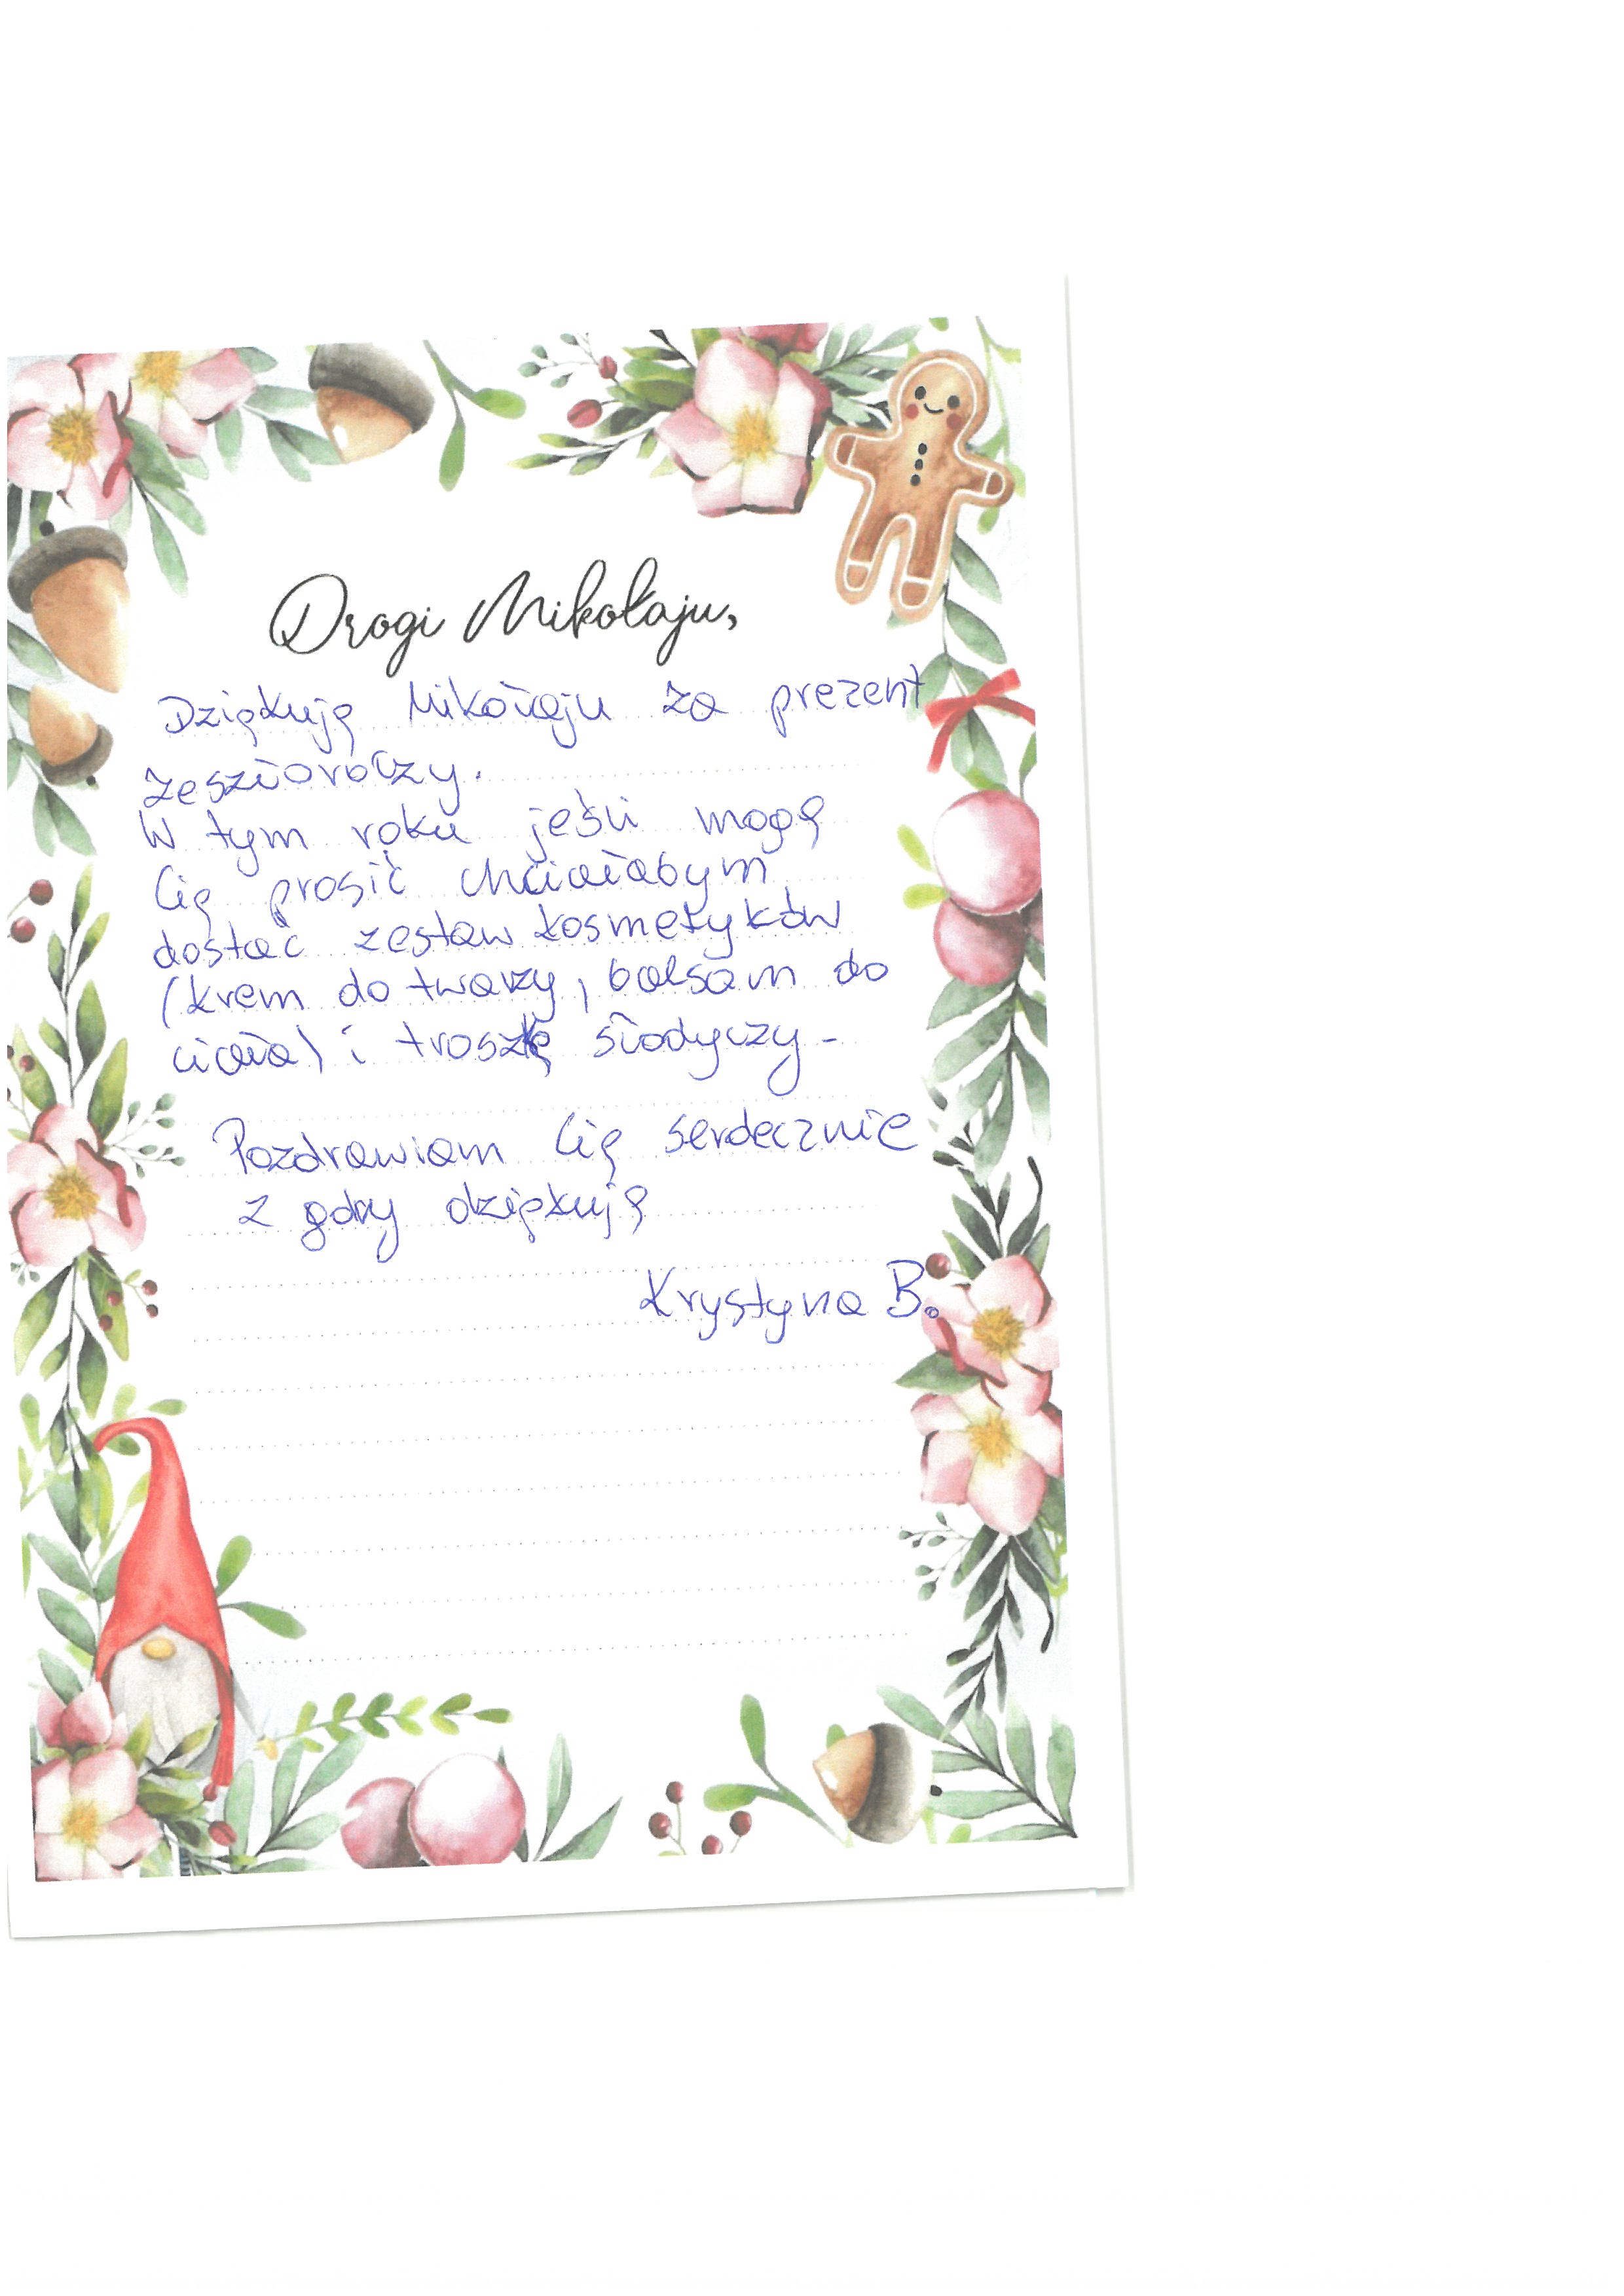 Drogi Mikołaju,
Dziękuję Mikołaju za prezent
zeszłoroczy.
W tym roku jeśli mogę
Cię prosić chciałabym
dostać zestaw kosmetyków
(krem do twarzy, balsam do
ciała) i troszkę słodyczy.
Pozdrawiam Cię serdecznie
z góry dziękuję
Krystyna B.